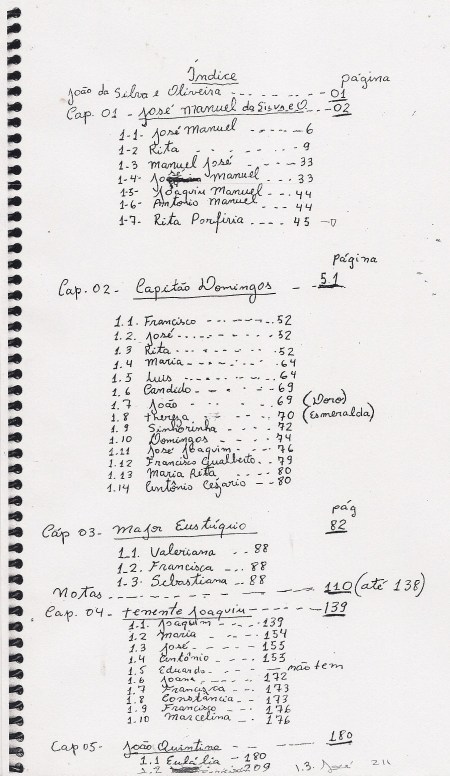 Índice página
João da Silva e Oliveira ----- 01
Cap. 01 - José Manuel da Silva e O. --- 02
1-1- José Manuel ----- 6
1-2 Rita ----- 9
1-3 Manuel José ----- 33
1-4- Manuel ---- 33
1-5- Joaquim Manuel ---- 44
1-6- Antonio Manuel ---- 44
1-7- Rita Porfíria ---- 45
página
Cap. 02 - Capitão Domingos ---- 51
1.1. Francisco ----- 52
1.2. José ----- 52
1.3 Rita ----- 52
1.4 Maria ----- 64
1.5 Luis ----- 64
1.6 Candido ---- 69
1.7 João ---- 69 (Doro)
1.8 Thereza ---- 70 (Esmeralda)
1.9 Sinhorinha ---- 72
1.10 Domingos ---- 74
1.11 José Joaquim ---- 76
1.12 Francisco Gualberto -- 79
1.13 Maria Rita ---- 80
1.14 Antônio Cezario -- 80
pág
Cáp 03 - Major Eustáquio 82
1.1. Valeriana -- 88
1-2. Francisca --- 88
1-3. Sebastiana -- 88
Notas ----- 110 (até 138)
Cap. 04 - Tenente Joaquim ----- 139
1.1. Joaquim ---- 139
1.2 Maria ---- 154
1.3 José ---- 155
1.4 Antônio --- 155
1.5 Eduardo ---- não tem
1.6 Joana ---- 172
1.7 Francisca --- 173
1.8 Constância --- 173
1.9 Francisco ---- 176
1.10 Marcelina --- 176
Cap 05 - João Quintino 180
1.1 Eulália - 180
1.2 209 1.3. José 211